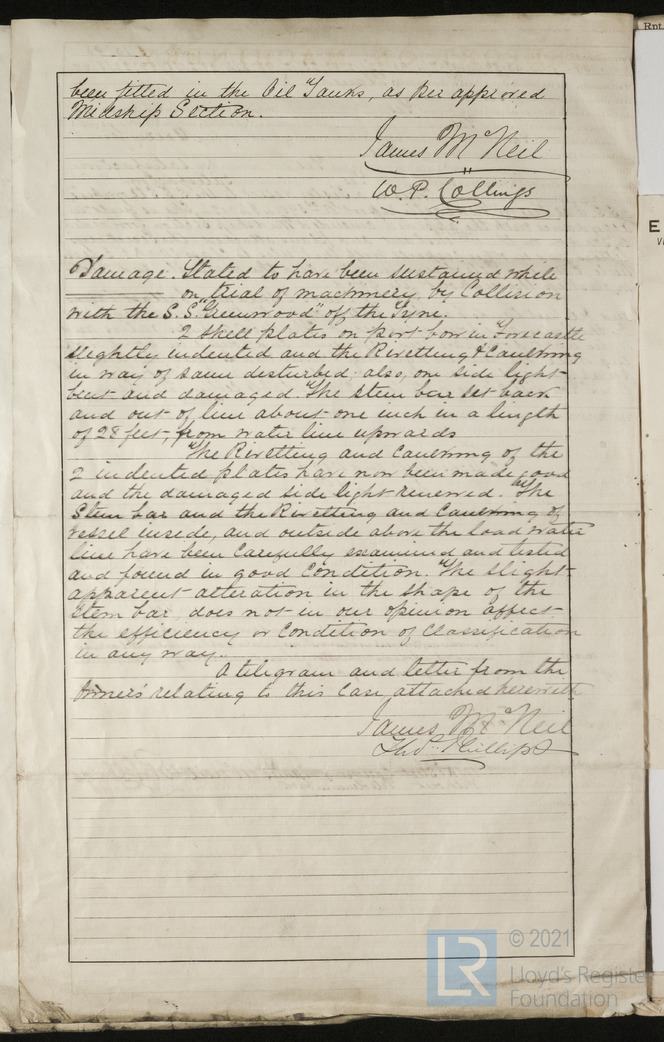 been fitted in the Oil Tanks, as per approved
Midship Section.
James McNeil
W. P. Collings
Damage. Stated to have been sustained while
on trial of machinery, by Collision
with the S.S. "Greenwood" off the Tyne.
2 shell plates on port bow in Forecastle
slightly indented and the Rivetting & Caulking
in way of same disturbed; also, one side light
bent and damaged. The stem bar set back
and out of line about one inch in a length
of 28 feet, from water line upwards
The Rivetting and Caulking of the
2 indented plates have now been made good
and the damaged side light renewed. The
Stem bar and the Rivetting and Caulking of
vessel inside, and outside above the load water
line have been Carefully examined and tested
and found in good Condition. The slight
apparent alteration in the shape of the
Stem bar, does not in our opinion affect
the efficiency or Condition of Classification
in any way.
A telegram and letter from the
Owners relating to this Case attached herewith
James McNeil
Thos. Phillips
Rpt.
E
© 2021
LR
Lloyd's Registe
Foundation